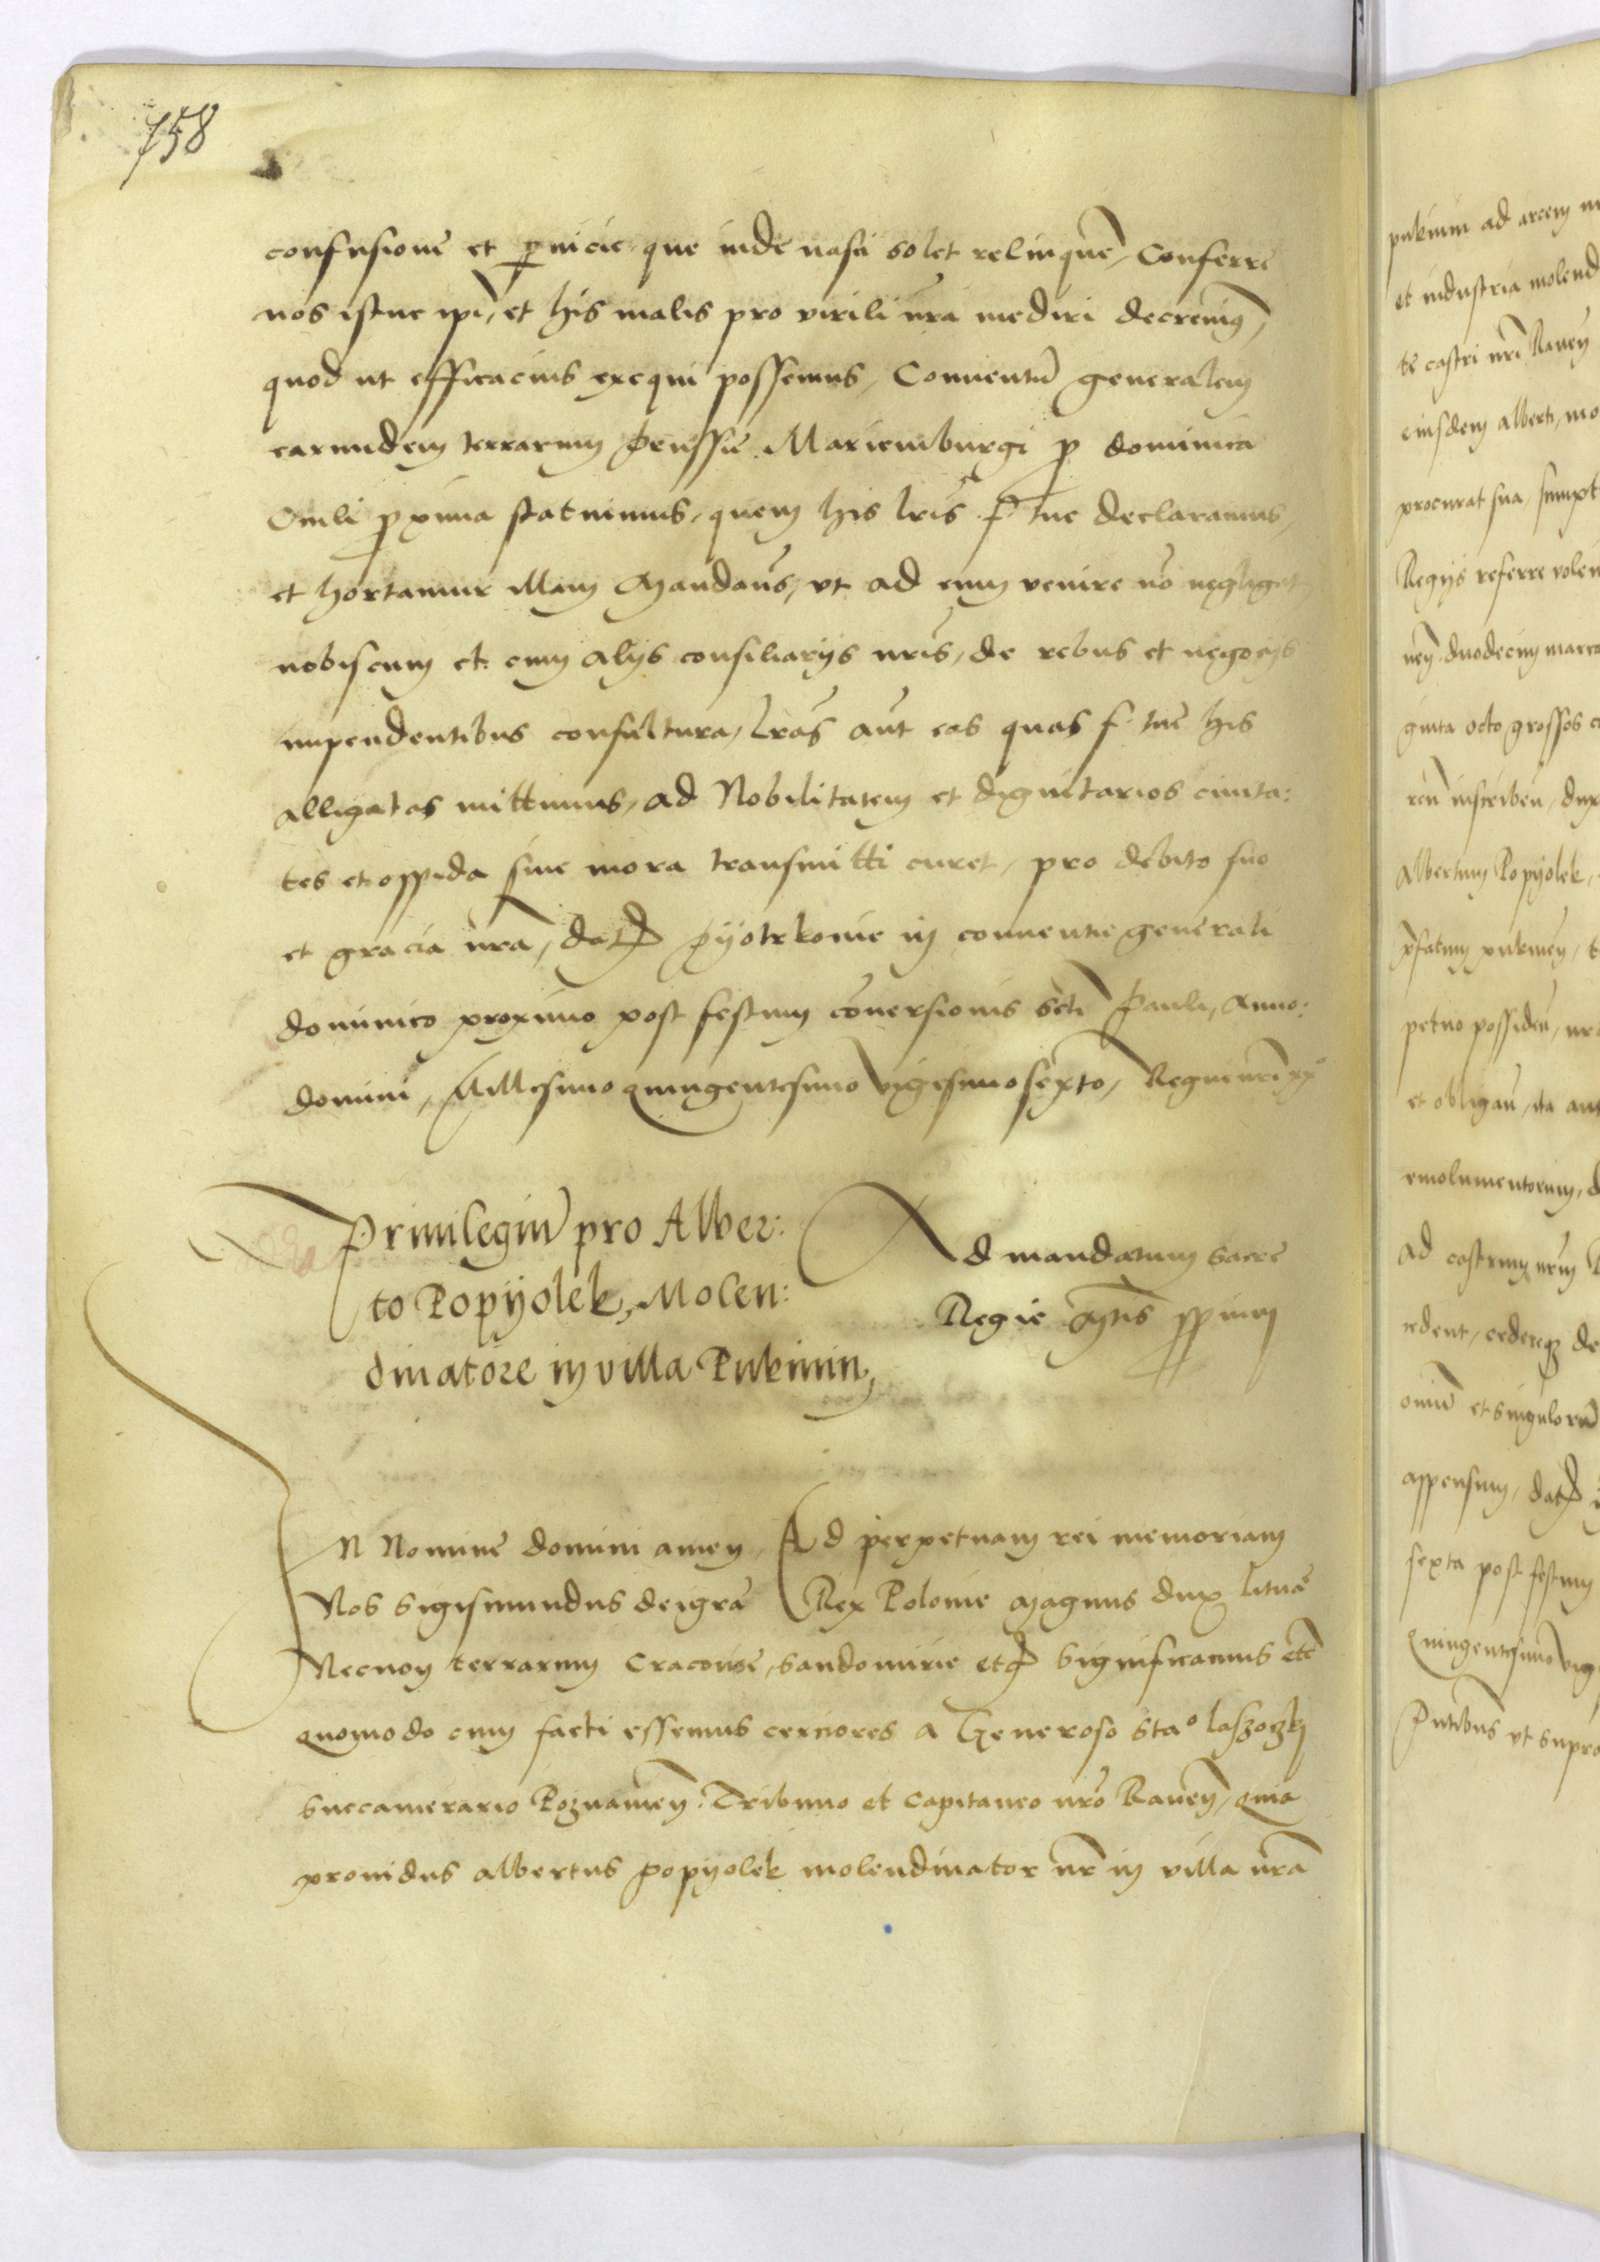 758
confusione et p̱nicie que inde nasci solet relinquē, Conferre
nos istuc ipī, et his malis pro virili n̄ra mederi decrevimꝰ,
quod ut efficacius exequi possemus, Conventū generalem
earundem terrarum Prussie Mariemburgi p̱ dominica
Oculi p̱xima statuimus, quem his lr̄is f. tue declaramus,
et hortamur illam Mandan̄s, vt ad eum venire nō negligat
nobiscum et cum alijs consiliarijs nr̄is, de rebus et negocijs
impendentibus consultura, Lr̄as aūt eas quas f. tue his
alligatas mittimus, ad Nobilitatem et dignitarios civita:
tes et oppida sine mora transmitti curet, pro debito suo
et gracia n̄ra, dat̄ Pyotrkovie in conventu generali
dominico proximo post festum cōversionis scti Pauli, Anno:
domini, Millesimo quingentesimo vigesimo sexto, Regni nr̄i xxº
Privilegiū pro Alber:
to Popyolek, Molen:
dinatore in villa Pukinin,
Ad mandatum sacre
Regie M̄tis p̱p̱rium
IN Nomine domini amen, Ad perpetuam rei memoriam
Nos Sigismundus dei gr̄a Rex Polonie Magnus dux Lituā̄e
Necnon terrarum Cracovie, Sandomirie etc̄ Significamus etc̄
quomodo cum facti essemus cerciores a Generoso Staº laszoczkj
Succamerario Poznanien̄. Tribuno et Capitaneo nr̄o Raven̄, quia
providus albertus popyolek molendinator nr̄ in villa n̄ra
pukinin ad arcem
et industria molend
te castri nr̄i Raven̄
eiusdem alberti, mo
procurat sua, sumpt
Regijs referre volen
duodecim marca
ginta octo grossos
inscriben̄, dux
Albertum Popyolek,
p̄fatum pukinin,
petuo possiden̄,
et obligan̄, ita aut
emolumentorum,
ad castrum nr̄um
cedent, cedereqꝫ de
omniū et singulorū
appensum, dat̄
sexta post festum
quingentesimo vig
Pn̄tibus vt supra